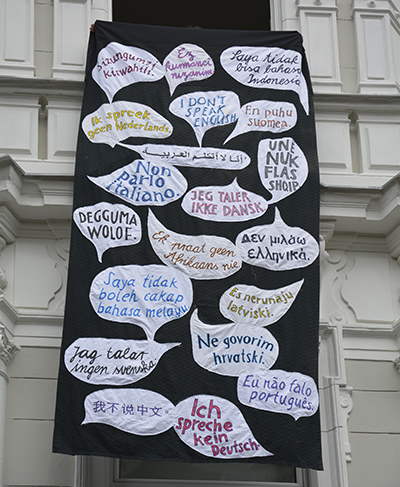 Sizungumzi
kiswahili.
Ez
kurmancî
nizanim.
Saya tidak
bisa bahasa
Indonesia
Ik spreek
geen Nederlands.
I DON'T
SPEAK
ENGLISH
En puhu
suomea.
أنا لا أتكلم العربية
UNË
NUK
FLAS
SHQIP.
Non parlo
italiano.
JEG TALER
IKKE DANSK
DEGGUMA
WOLOF.
Ek praat geen
Afrikaans nie
Δεν μιλάω
ελληνικά.
Saya tidak
boleh cakap
bahasa melayu
Es nerunāju
latviski.
Ne govorim
hrvatski.
Jag talar
ingen svenska.
Eu não falo
português.
我不说中文
Ich
spreche
kein
Deutsch.